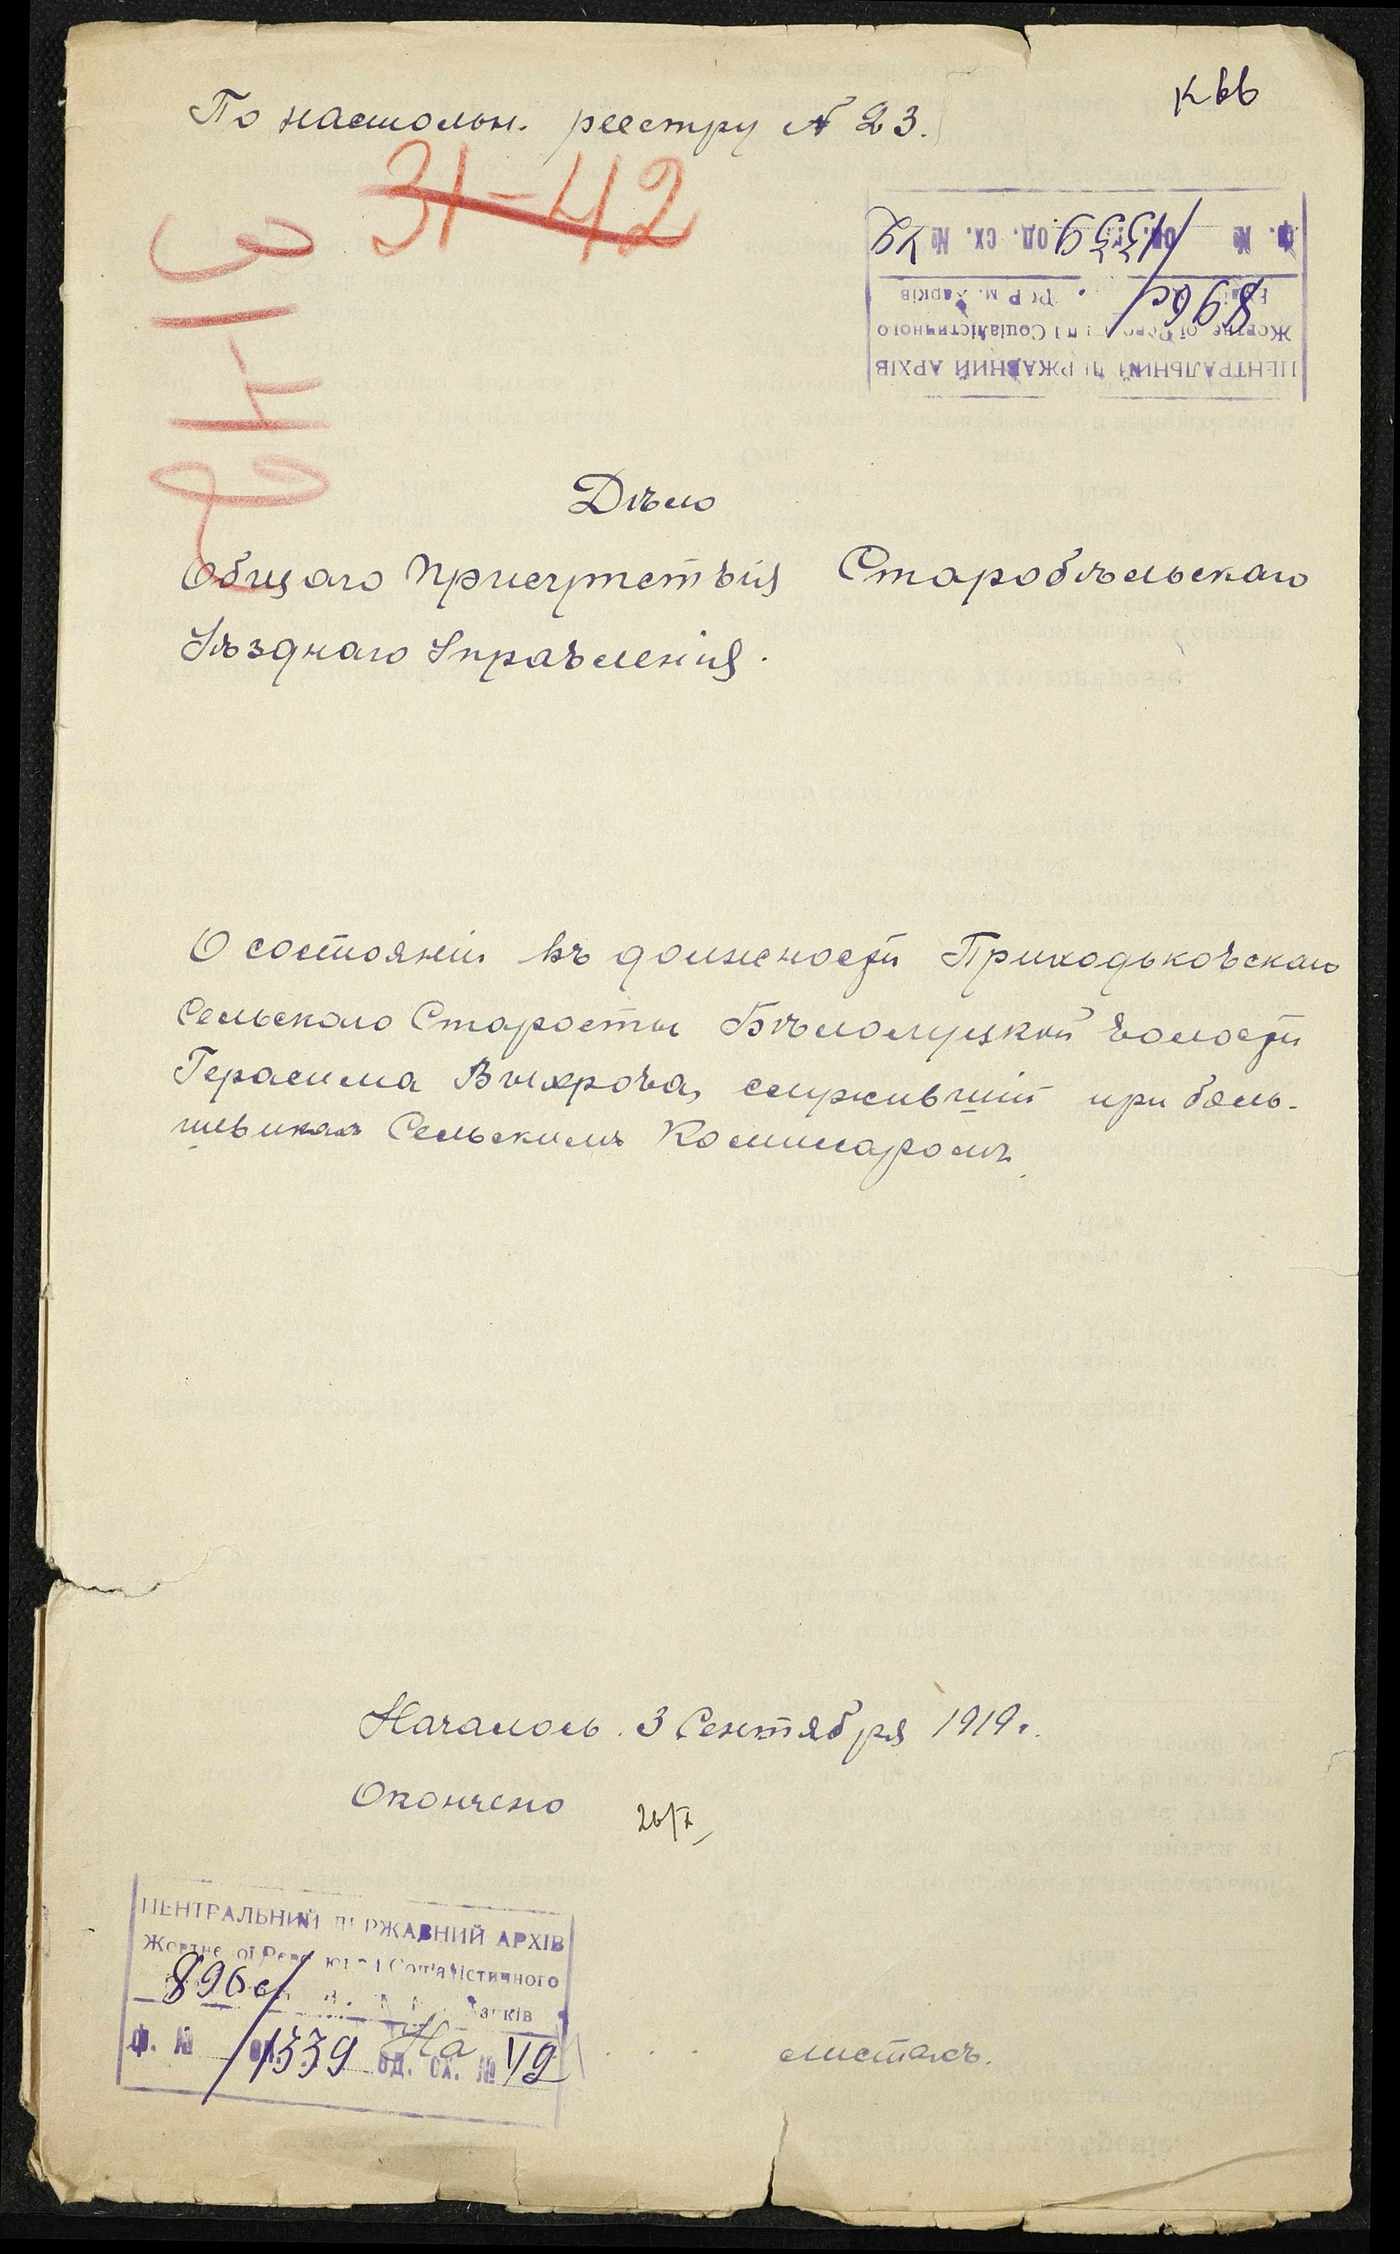 По настольн. реестру № 23.
31-42
31-42
Дѣло
Общаго Присутствія Старобѣльскаго
Уѣзднаго Управленія.
О состояніи въ должности Приходьковскаго
Сельскаго Старосты Бѣлолуцкой волости
Герасима Вихрова, служившій при боль-
шевикахъ Сельскимъ Комиссаромъ.
Началось 3 Сентября 1919 г.
Окончено 26/X
ЦЕНТРАЛЬНИЙ ДЕРЖАВНИЙ АРХІВ
Жовтневої Революції і Соціалістичного
м. Харків
896с/
Ф. № оп. 1339 од. сх. № 42
ЦЕНТРАЛЬНИЙ ДЕРЖАВНИЙ АРХІВ
Жовтневої Революції і Соціалістичного
Харків
896с/
Ф. № оп. 1339 од. сх. № 42
На листахъ.